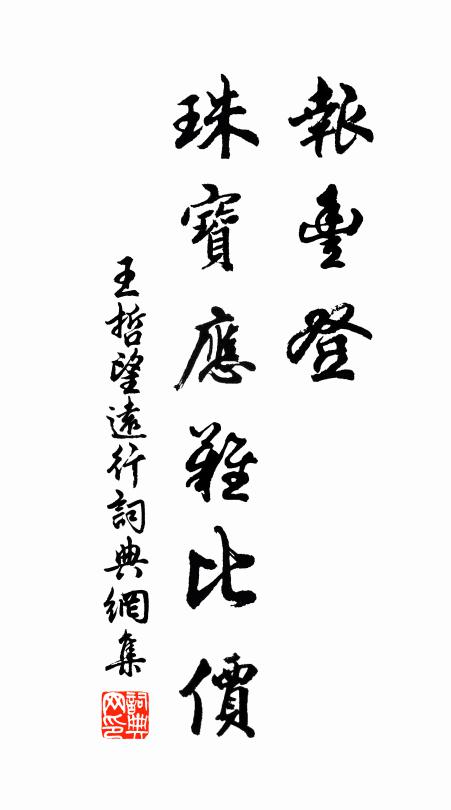 報豐登
珠寶應難比價
王哲望遠行詞典網集
詞典網印